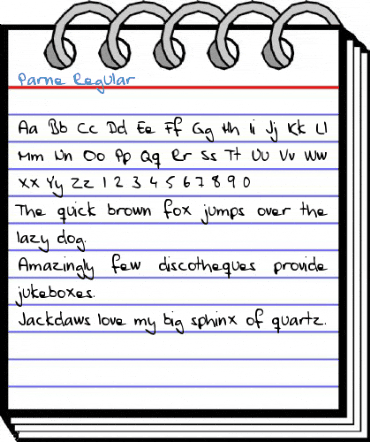 Parne Regular
Aa Bb Cc Dd Ee Ff Gg Hh Ii Jj Kk Ll
Mm Nn Oo Pp Qq Rr Ss Tt Uu Vv Ww
Xx Yy Zz 1 2 3 4 5 6 7 8 9 0
The quick brown fox jumps over the
lazy dog.
Amazingly few discotheques provide
jukeboxes.
Jackdaws love my big sphinx of quartz.